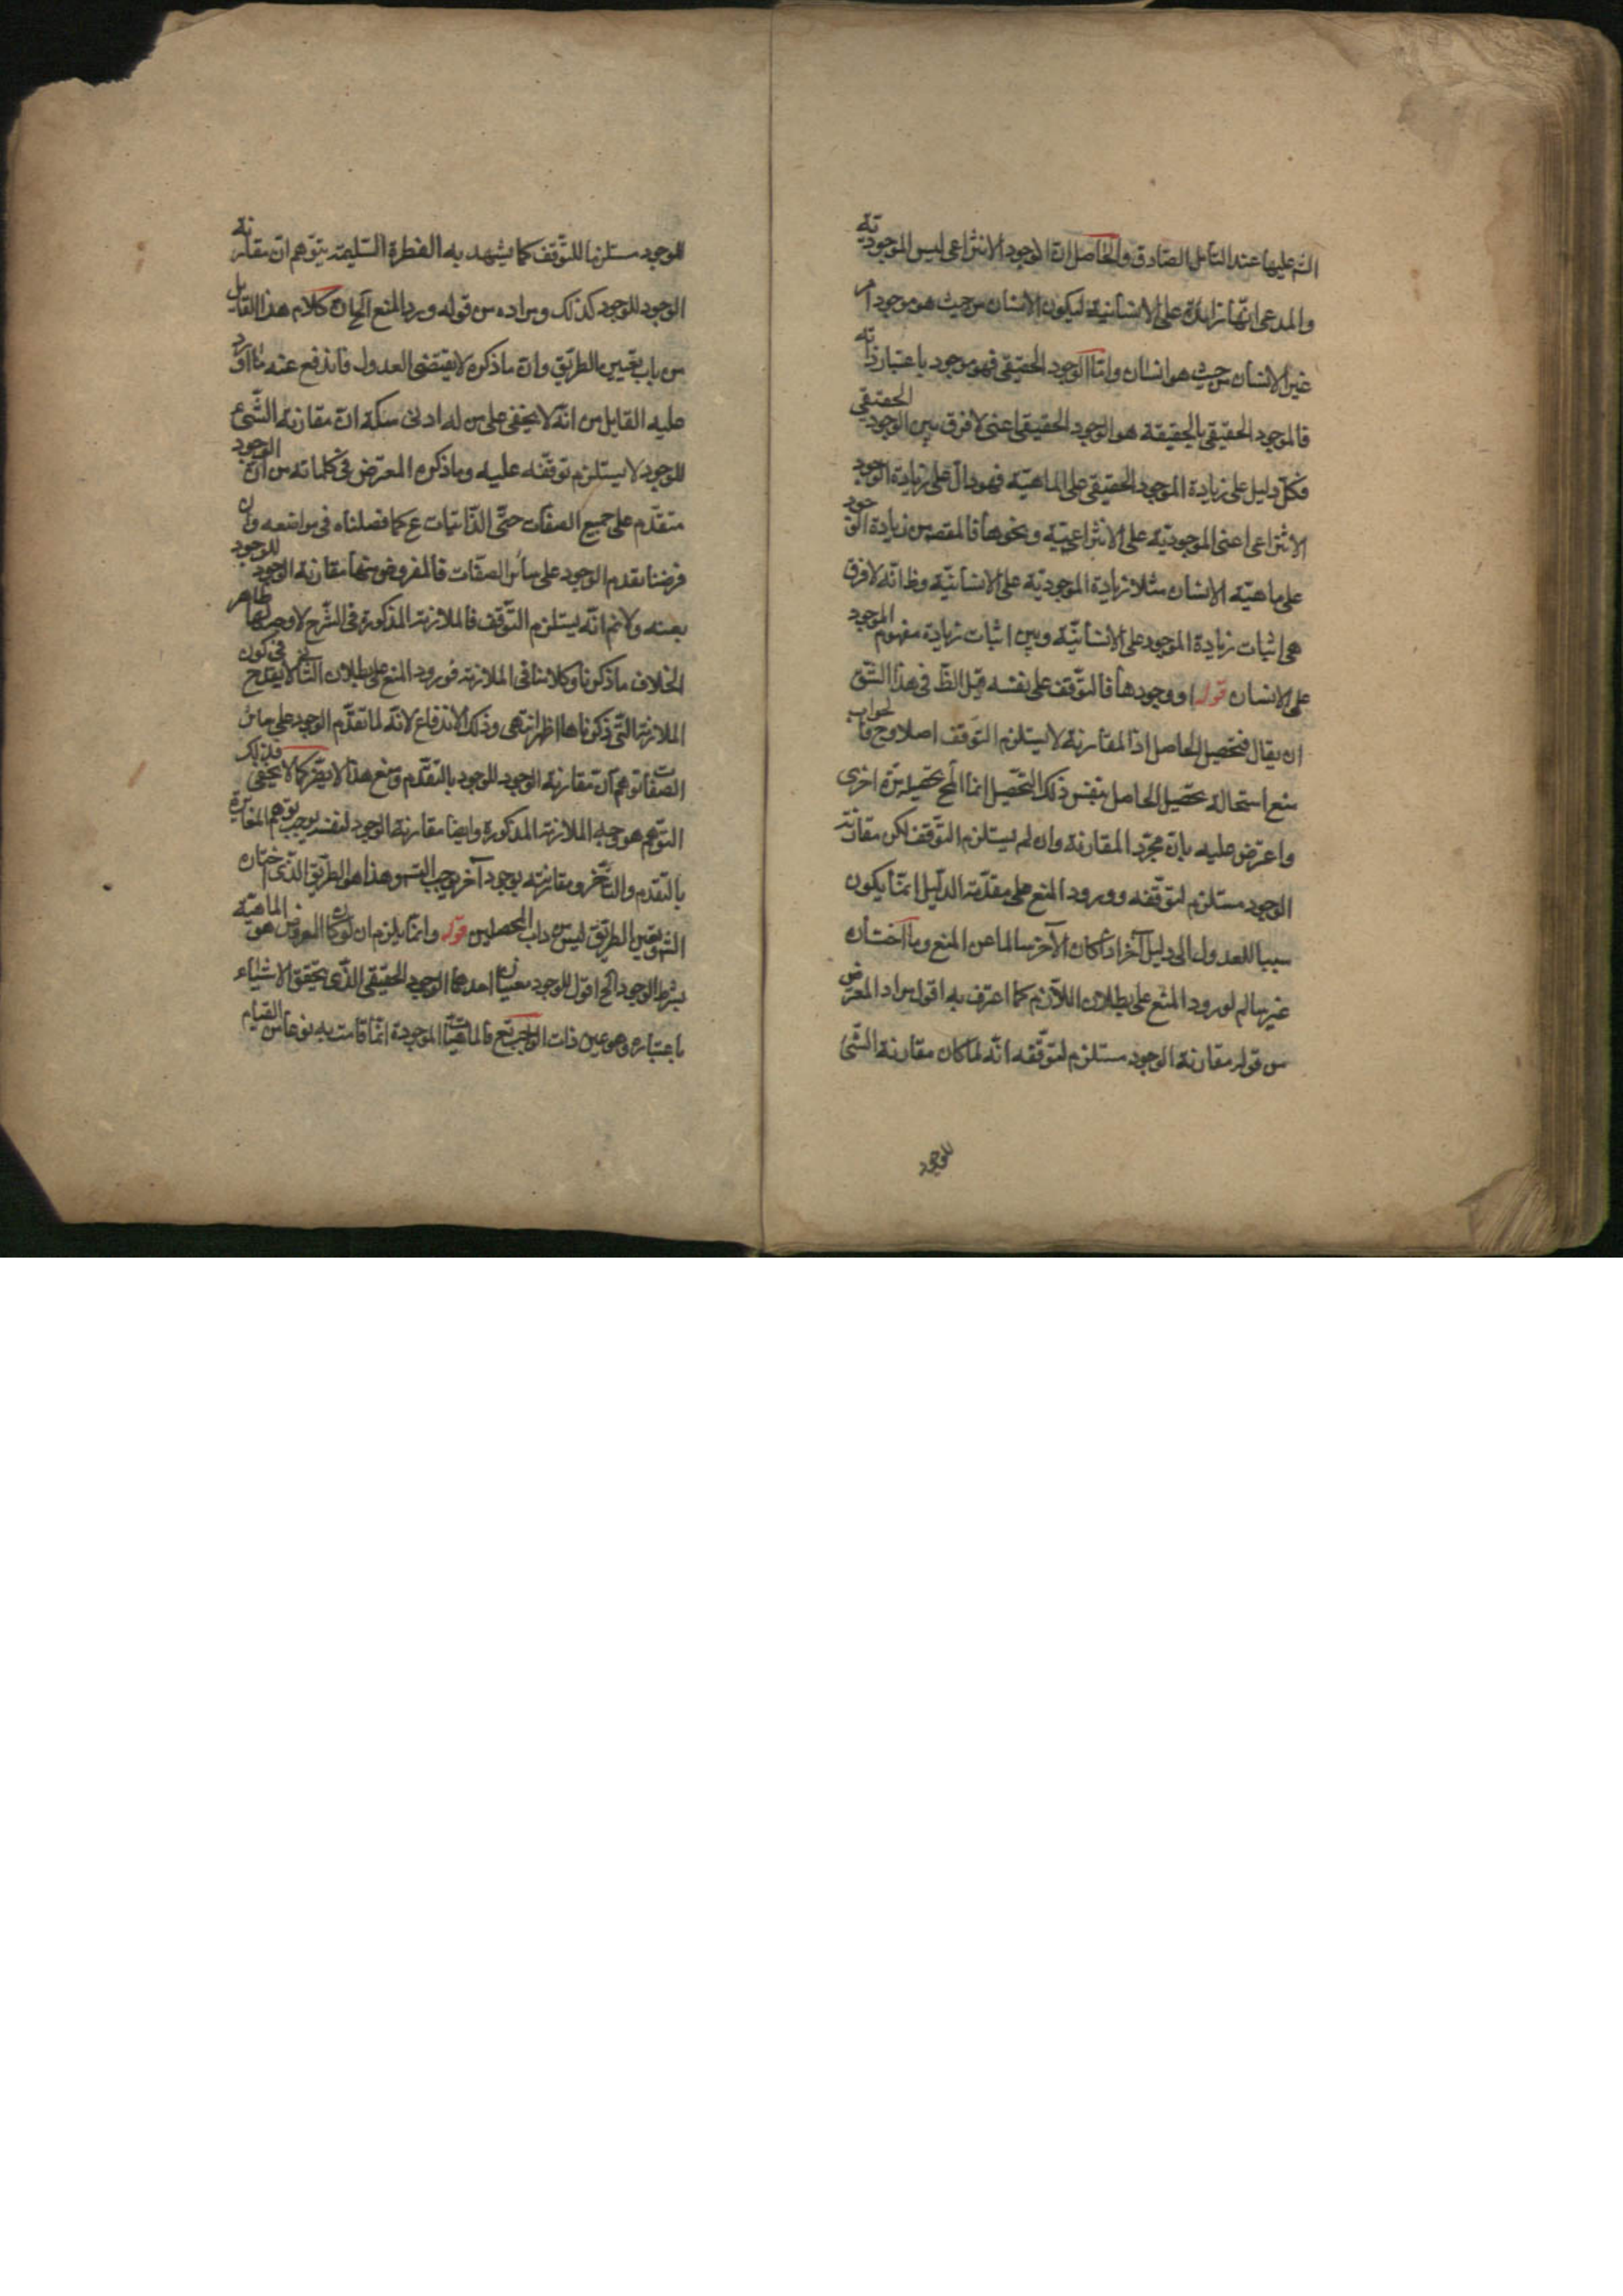 اليه عليها عند التأمل الصادق والحاصل ان الوجود الانتزاعي ليس الموجودية
والمدعى انها زائدة على الانسانية ليكون الانسان من حيث هو موجود امر
غير الانسان من حيث هو انسان واما الوجود الحقيقي فهو موجود باعتبار ذاته
فالموجود الحقيقي بالحقيقة هو الوجود الحقيقي اعني لا فرق بين الوجود الحقيقي
فكل دليل على زيادة الموجود الحقيقي على الماهية فهو دال على زيادة الوجود
الانتزاعي اعني الموجودية على الانتزاعيية ونحوها فالمقصد من زيادة الوجود
على ماهية الانسان مثلا زيادة الموجودية على الانسانية وظ انه لا فرق
هي اثبات زيادة الموجود على الانسانية وبين اثبات زيادة مفهوم الموجود
على الانسان قوله او وجودها فالتوقف على نفسه قيل الظ في هذا الشق
ان يقال فتحصيل الحاصل اذ المقارنة لا يستلزم التوقف اصلا وح فالجواب
منع استحالة تحصيل الحاصل بنفس ذلك التحصيل انما المح تحصيله مرة اخرى
واعترض عليه بان مجرد المقارنة وان لم يستلزم التوقف لكن مقارنة
الوجود مستلزم لتوقفه وورود المنع على مقدمة الدليل انما يكون
سببا للعدول الى دليل آخر اذا كان الآخر سالما عن المنع وما اختاره
غير سالم لورود المنع على بطلان اللازم كما اعترف به اقول مراد المعترض
من قوله مقارنة الوجود مستلزم لتوقفه انه لما كان مقارنة الشئ
للوجود
للوجود مستلزما للتوقف كما يشهد به الفطرة السليمة يتوهم ان مقارنة
الوجود للوجود كذلك ومراده من قوله ورد المنع الخ ان كلام هذا القايل
من باب تعيين الطريق وان ما ذكره لا يقتضي العدول فاندفع عنه ما اورد
عليه القايل من انه لا يخفى على من له ادنى مسكة ان مقارنة الشئ
للوجود لا يستلزم توقفه عليه وما ذكره المعترض في كلماته من ان الوجود
متقدم على جميع الصفات حتى الذاتيات ع كما فصلناه في مواضعه وان
فرضنا تقدم الوجود على سائر الصفات فالمفروض منها مقارنة الوجود للوجود
بعينه ولانم انه يستلزم التوقف فالملازمة المذكورة في الشرح لا وجه لها ظاهر
الخلاف ما ذكرنا وكلامنا في الملازمة فورود المنع على بطلان التالي لا يقدح في كون
الملازمة التي ذكرناها اظهر انتهى وذلك الاندفاع لانه لما تقدم الوجود على سائر
الصفات توهم ان مقارنة الوجود للوجود بالتقدم ومنع هذا لا يضر كما لا يخفى فلذلك
التوهم هو وجه الملازمة المذكورة وايضا مقارنة الوجود لنفسه يوجب توهم المغايرة
بالتقدم والتأخر ومقارنته بوجود آخر يوجب التسم وهذا هو الطريق الذي اختاره
الش وتعيين الطريق ليس من داب المحصلين قوله وانما يلزم ان لو كان المعروض هو الماهية
بشرط الوجود الخ اقول للوجود معنيان احدهما الوجود الحقيقي الذي يتحقق الاشياء
باعتباره وهو عين ذات الواجب تع فالماهيات الموجودة انما قامت به نوعا من القيام